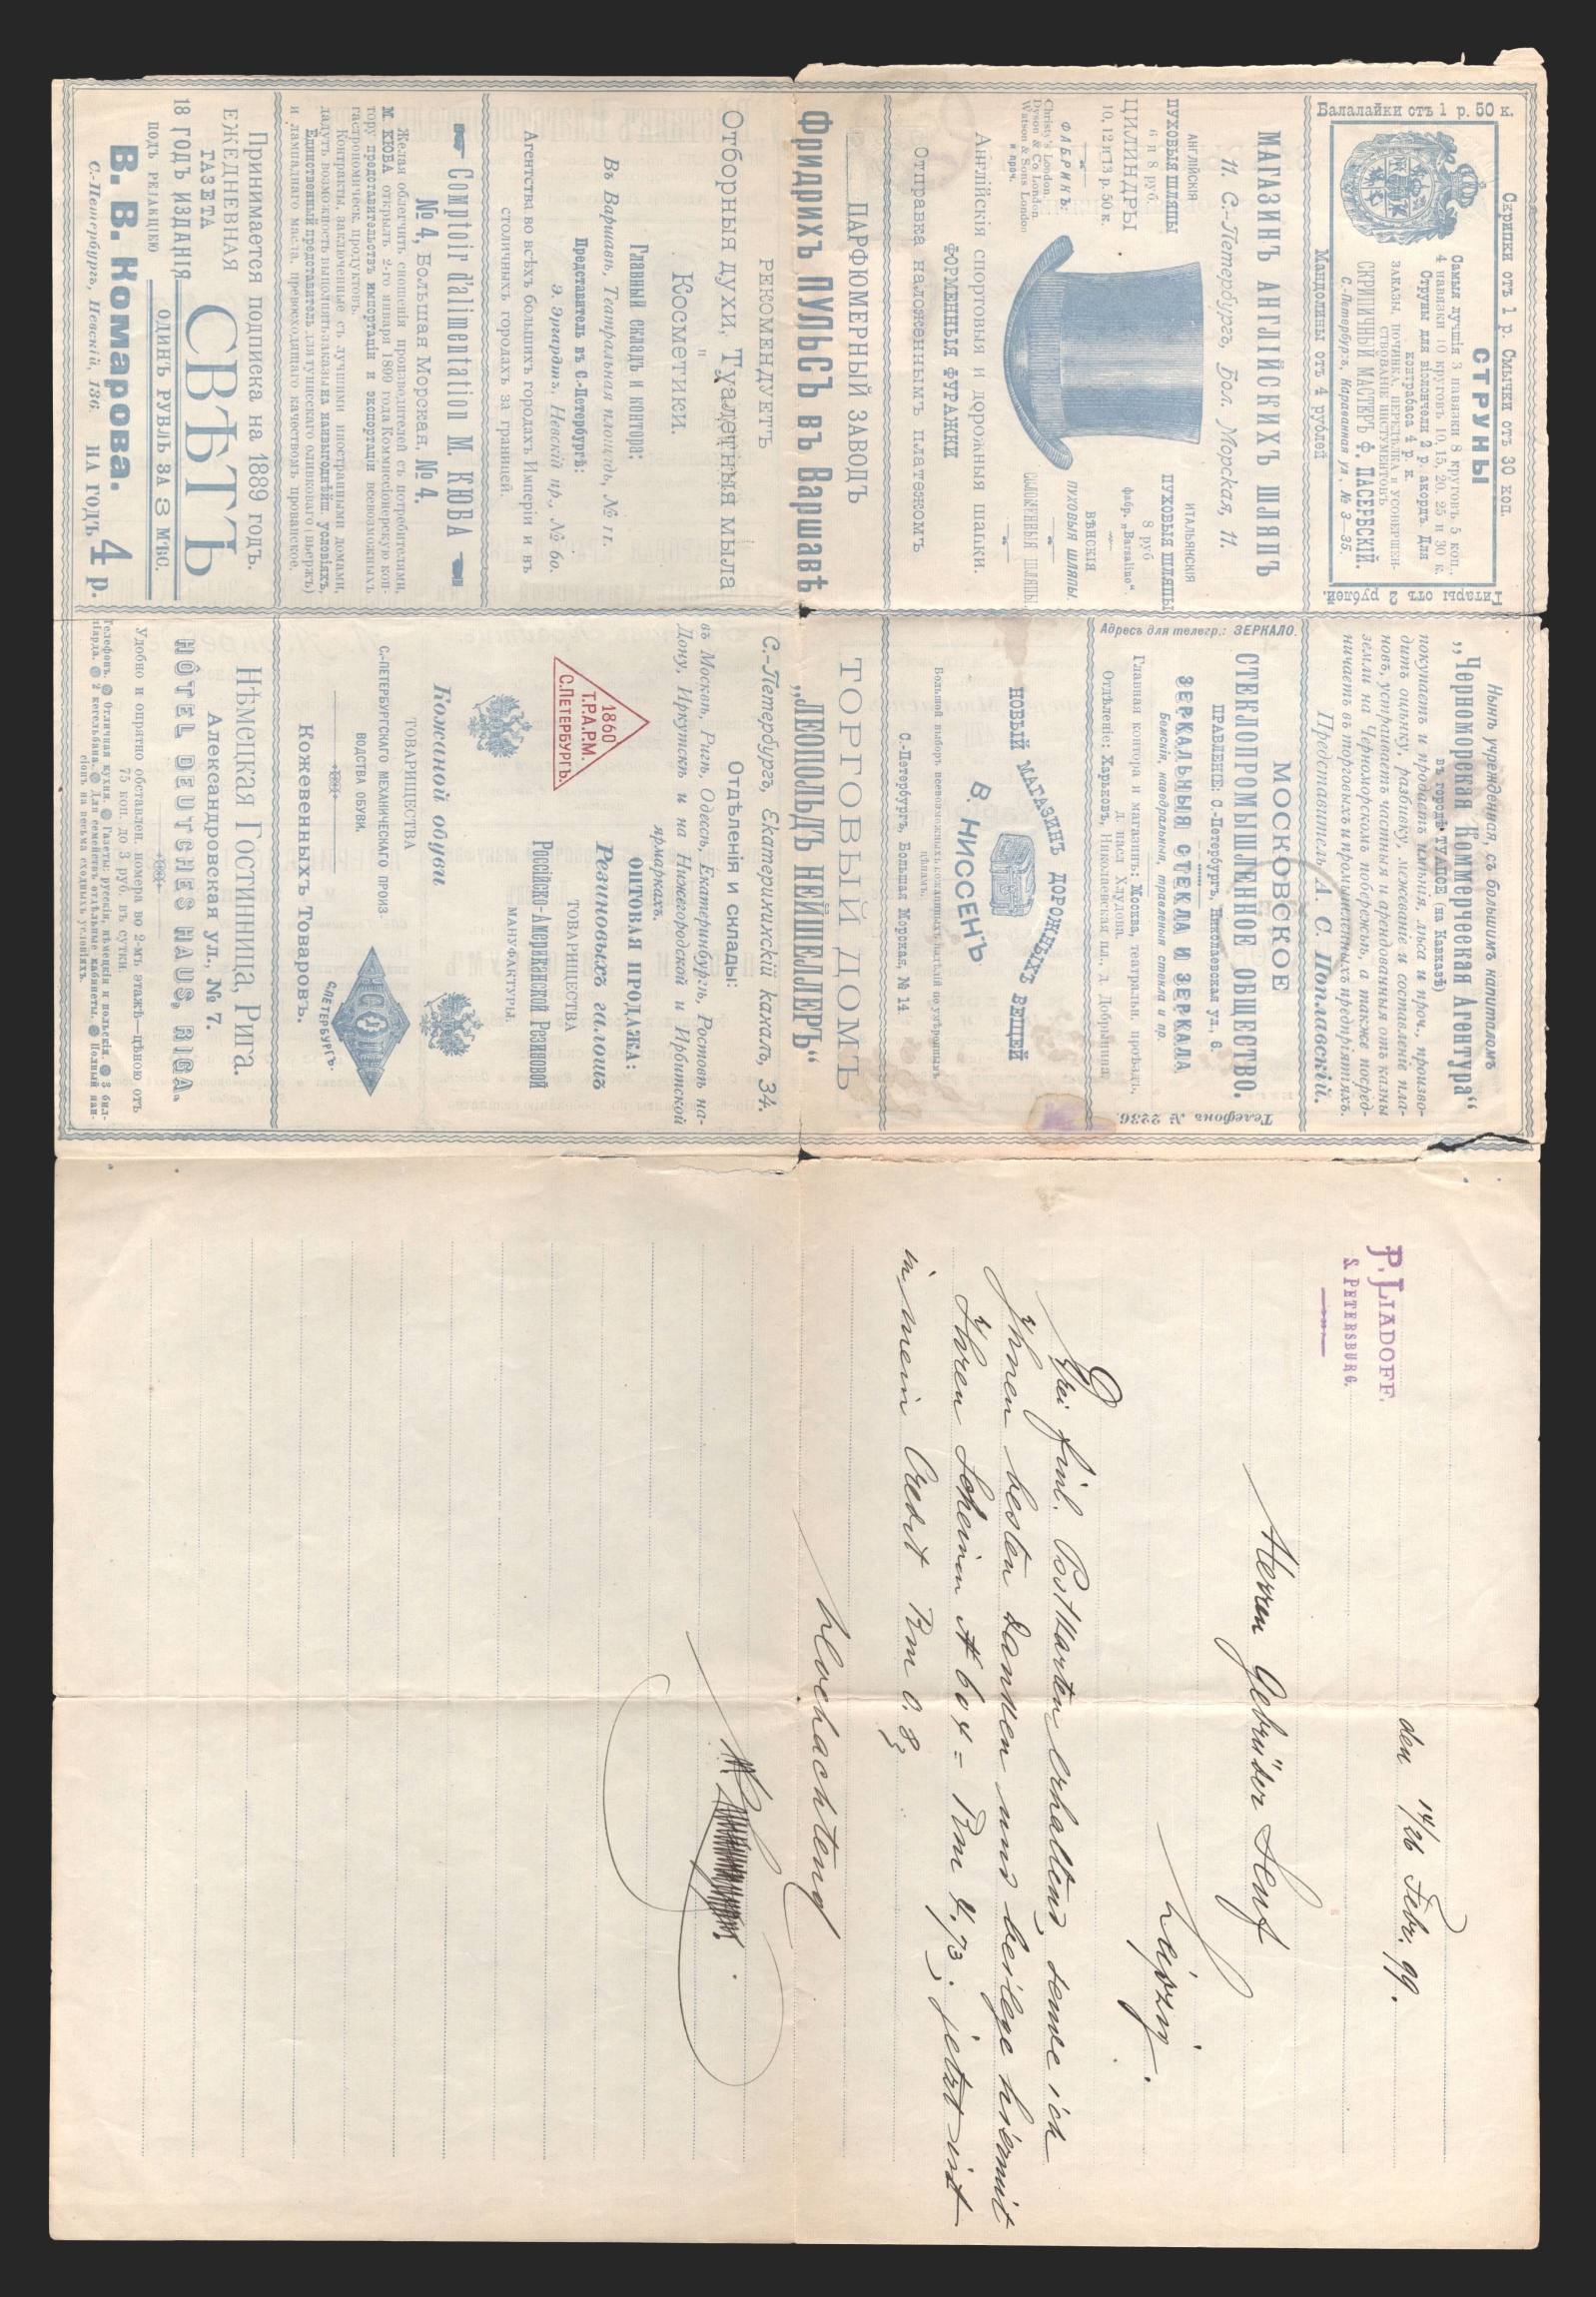 Скрипки отъ 1 р. Смычки отъ 30 коп.
Балалайки отъ 1 р. 50 к.
СТРУНЫ
Самыя лучшія 3 навязки 8 круговъ 5 коп.,
4 навязки 10 круговъ 10, 15, 20, 25 и 30 к.
Струны для віолончели 2 р. акордъ. Для
контрабаса 4 р. к.
ЗАКАЗЫ, ПОЧИНКА, ПЕРЕДѢЛКА и УСОВЕРШЕН-
СТВОВАНІЕ ИНСТУМЕНТОВЪ
СКРИПИЧНЫЙ МАСТЕРЪ Ф. ПАСЕРБСКІЙ.
С.-Петербургъ, Караванная ул., № 3—35.
Гитары отъ 2 рублей.
Мандолины отъ 4 рублей
МАГАЗИНЪ АНГЛІЙСКИХЪ ШЛЯПЪ
11. С.-Петербургъ, Бол. Морская, 11.
АНГЛІЙСКІЯ
ПУХОВЫЯ ШЛЯПЫ
6 и 8 руб.
ЦИЛИНДРЫ
10, 12 и 13 р. 50 к.
ФАБРИКЪ:
Christy's London
Dyson & Co London
Watson & Sons London
и проч.
ИТАЛЬЯНСКІЯ
ПУХОВЫЯ ШЛЯПЫ
8 руб
фабр. „Barsalino“.
ВѢНСКІЯ
ПУХОВЫЯ ШЛЯПЫ.
ШЛЯПЫ.
Англійскія спортовыя и дорожныя шапки.
ФОРМЕННЫЯ ФУРАЖКИ
Отправка наложеннымъ платежомъ
ПАРФЮМЕРНЫЙ ЗАВОДЪ
Фридрихъ ПУЛЬСЪ въ Варшавѣ
РЕКОМЕНДУЕТЪ
Отборныя духи, Туалетныя мыла
и
Косметики.
Главный складъ и контора:
Въ Варшавѣ, Театральная площадь, № 11.
Представитель въ С.-Петербургѣ:
Э. Эргардтъ, Невскій пр., № 60.
Агентства во всѣхъ большихъ городахъ Имперіи и въ
столичныхъ городахъ за границей.
Comptoir d'alimentation М. КЮБА
№ 4, Большая Морская, № 4.
Желая облегчить сношенія производителей съ потребителями,
М. КЮБА открылъ 2-го января 1890 года Коммиссіонерскую кон-
тору представительствъ импортаціи и экспортаціи всевозможныхъ
гастрономическ. продуктовъ.
Контракты, заключенные съ лучшими иностранными домами,
дадутъ возможность выполнять заказы на наивыгоднѣйш. условіяхъ.
Единственный представитель для тунисскаго оливковаго вьержъ)
и лампаднаго масла, превосходящаго качествомъ прованское.
Принимается подписка на 1889 годъ.
ЕЖЕДНЕВНАЯ
ГАЗЕТА
18 ГОДЪ ИЗДАНІЯ
ПОДЪ РЕДАКЦІЕЮ
СВѢТЪ
ОДИНЪ РУБЛЬ ЗА 3 МѢС.
В. В. Комарова.
НА ГОДЪ 4 р.
С.-Петербургъ, Невскій, 136.
Вновь учрежденная, съ большимъ капиталомъ
„Черноморская Коммерческая Агентура“
въ городѣ ТУАПСЕ (на Кавказѣ)
покупаетъ и продаетъ имѣнія, лѣса и проч., произво-
дитъ оцѣнку, разбивку, межеваніе и составленіе пла-
новъ, устраиваетъ частныя и арендованныя отъ казны
земли на Черноморскомъ побережьѣ, а также посред-
ничаетъ въ торговыхъ и промышленныхъ предпріятіяхъ.
Представитель А. С. Поплавскій.
Адресъ для телегр.: ЗЕРКАЛО.
МОСКОВСКОЕ
СТЕКЛОПРОМЫШЛЕННОЕ ОБЩЕСТВО.
ПРАВЛЕНІЕ: С.-Петербургъ, Николаевская ул., 6.
ЗЕРКАЛЬНЫЯ СТЕКЛА И ЗЕРКАЛА
Бемскія, каѳедральныя, травленыя стекла и пр.
Главная контора и магазинъ: Москва, театральн. проѣздъ,
д. насл. Хлудова.
Отдѣленіе: Харьковъ, Николаевская пл., д. Добрынина
Телефонъ № 2236
НОВЫЙ МАГАЗИНЪ ДОРОЖНЫХЪ ВЕЩЕЙ
В. НИССЕНЪ
Большой выборъ всевозможныхъ кожанныхъ издѣлій по умѣреннымъ
цѣнамъ.
С.-Петербургъ, Большая Морская, № 14
ТОРГОВЫЙ ДОМЪ
„ЛЕОПОЛЬДЪ НЕЙШЕЛЛЕРЪ“
С.-Петербургъ, Екатерининскій каналъ, 34.
Отдѣленія и склады:
въ Москвѣ, Ригѣ, Одессѣ, Екатеринбургѣ, Ростовѣ на-
Дону, Иркутскѣ и на Нижегородской и Ирбитской
ярмаркахъ.
ОПТОВАЯ ПРОДАЖА:
Резиновыхъ галошъ
ТОВАРИЩЕСТВА
Россійско-Американской Резиновой
МАНУФАКТУРЫ.
1860
Т.Р.А.Р.М.
С.ПЕТЕРБУРГЪ.
Кожаной обуви
ТОВАРИЩЕСТВА
С.-ПЕТЕРБУРГСКАГО МЕХАНИЧЕСКАГО ПРОИЗ-
ВОДСТВА ОБУВИ.
Кожевенныхъ Товаровъ.
С.ПЕТЕРБУРГЪ.
Нѣмецкая Гостинница, Рига.
Александровская ул., № 7.
HÔTEL DEUTCHES HAUS, RIGA.
Удобно и опрятно обставлен. номера во 2-мъ этажѣ—цѣною отъ
75 коп. до 3 руб. въ сутки.
Телефонъ. Отличная кухня. Газеты: рускія, нѣмецкія и польскія. 3 бил-
ліарда. 2 кегельбана. Для семействъ отдѣльные кабинеты. Полный пан-
сіонъ на весьма сходныхъ условіяхъ.
P. LIADOFF.
S. PETERSBURG.
den 14/26 Febr. 99.
Herren Gebrüder Senf
Leipzig.
Ihre frdl. Postkarten erhaltend, sende ich
Ihnen besten Danken und beilege hiermit
Ihren Schein № 604 = Rm 4,73; jetzt ist
in mein Credit Rm 0.8;
Hochachtend